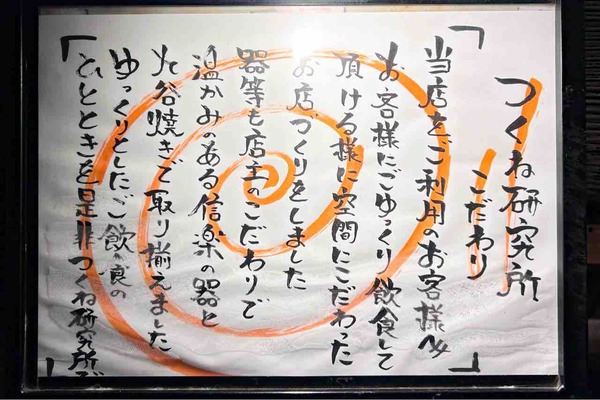 つくね研究所
こだわり
「当店をご利用のお客様へ
お客様にごゆっくり飲食して
頂ける様に空間にこだわった
お店づくりをしました
器等も店主のこだわりで
温かみのある信楽の器と
九谷焼きで取り揃えました
ゆっくりとしたご飲食の
ひとときを是非つくね研究所で」